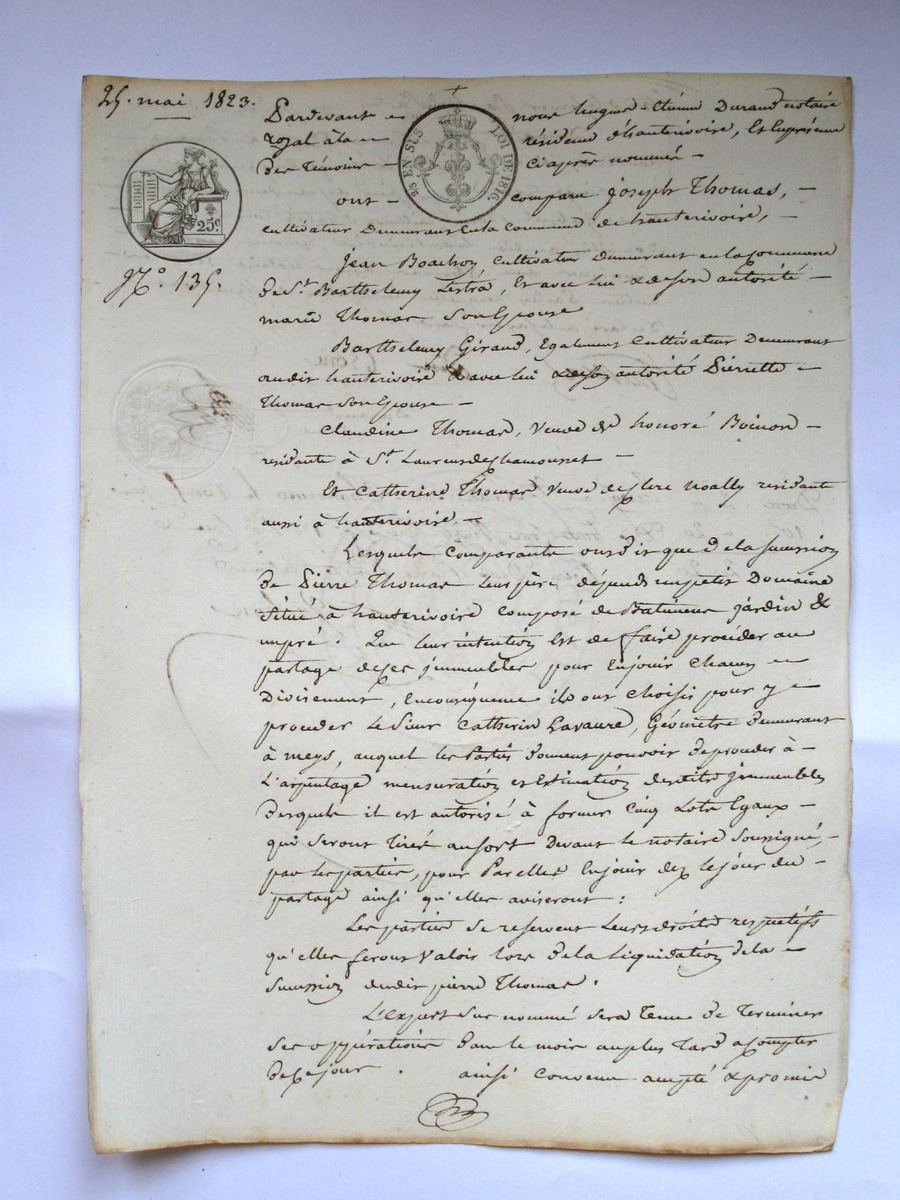 25. mai 1823.
Pardevant nous hugues-Etienne Durand notaire
royal à la résidence d'hauterivoire, Et En présence
des témoins Ci après nommés
25 EN SUS LOI DE 1816.
25c
ont comparu joseph Thomas,
cultivateur demeurant En la Commune de hauterivoire,
N°. 135.
jean Boachon cultivateur demeurant en la Commune
de St. Barthelemy Lestra, Et avec lui & de son autorité
marie Thomas son Epouse
Barthelemy Giraud, Egalement Cultivateur Demeurant
audit hauterivoire & avec lui & de son autorité Pierrette
Thomas son Epouse
Claudine Thomas, Veuve de honoré Boinon
residante à St. Laurent de Chamousset
Et Catherine Thomas veuve de noally residante
aussi à hauterivoire
Lesquels Comparants ont dit que de la succession
de Pierre Thomas leur père, dépend un petit Domaine
situé à hauterivoire composé de Batiment jardin &
un pré. Que leur intention Est de faire procéder au
partage de ces jmmeubles pour En jouir chacun
Divisement, En conséquence ils ont choisis pour y
proceder le sieur Catherin Lavaure, Géomètre demeurant
à meys, auquel les Parties donnent pouvoir de proceder à
L'arpentage mensuration et Estimation desdits jmmeubles
desquels il est autorisé à former Cinq Lots Egaux
qui seront tirés au sort devant le notaire soussigné,
par les parties, pour Par elles En jouir dez le jour du
partage ainsi qu'elles aviseront :
Les parties se reservent leurs droits respectifs
qu'elles feront valoir lors de la Liquidation de la
succession dudit pierre Thomas.
L'expert sus nommé sera tenu de terminer
ses oppérations dans le mois au plus tard a compter
de ce jour. ainsi convenu accepté & promis